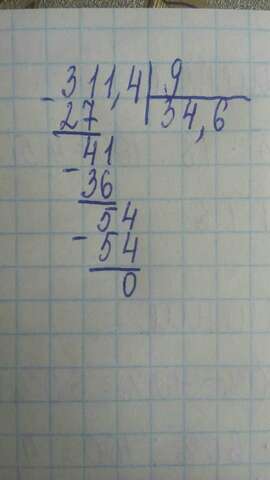 - 311,4 | 9
27 34,6
41
- 36
54
- 54
0